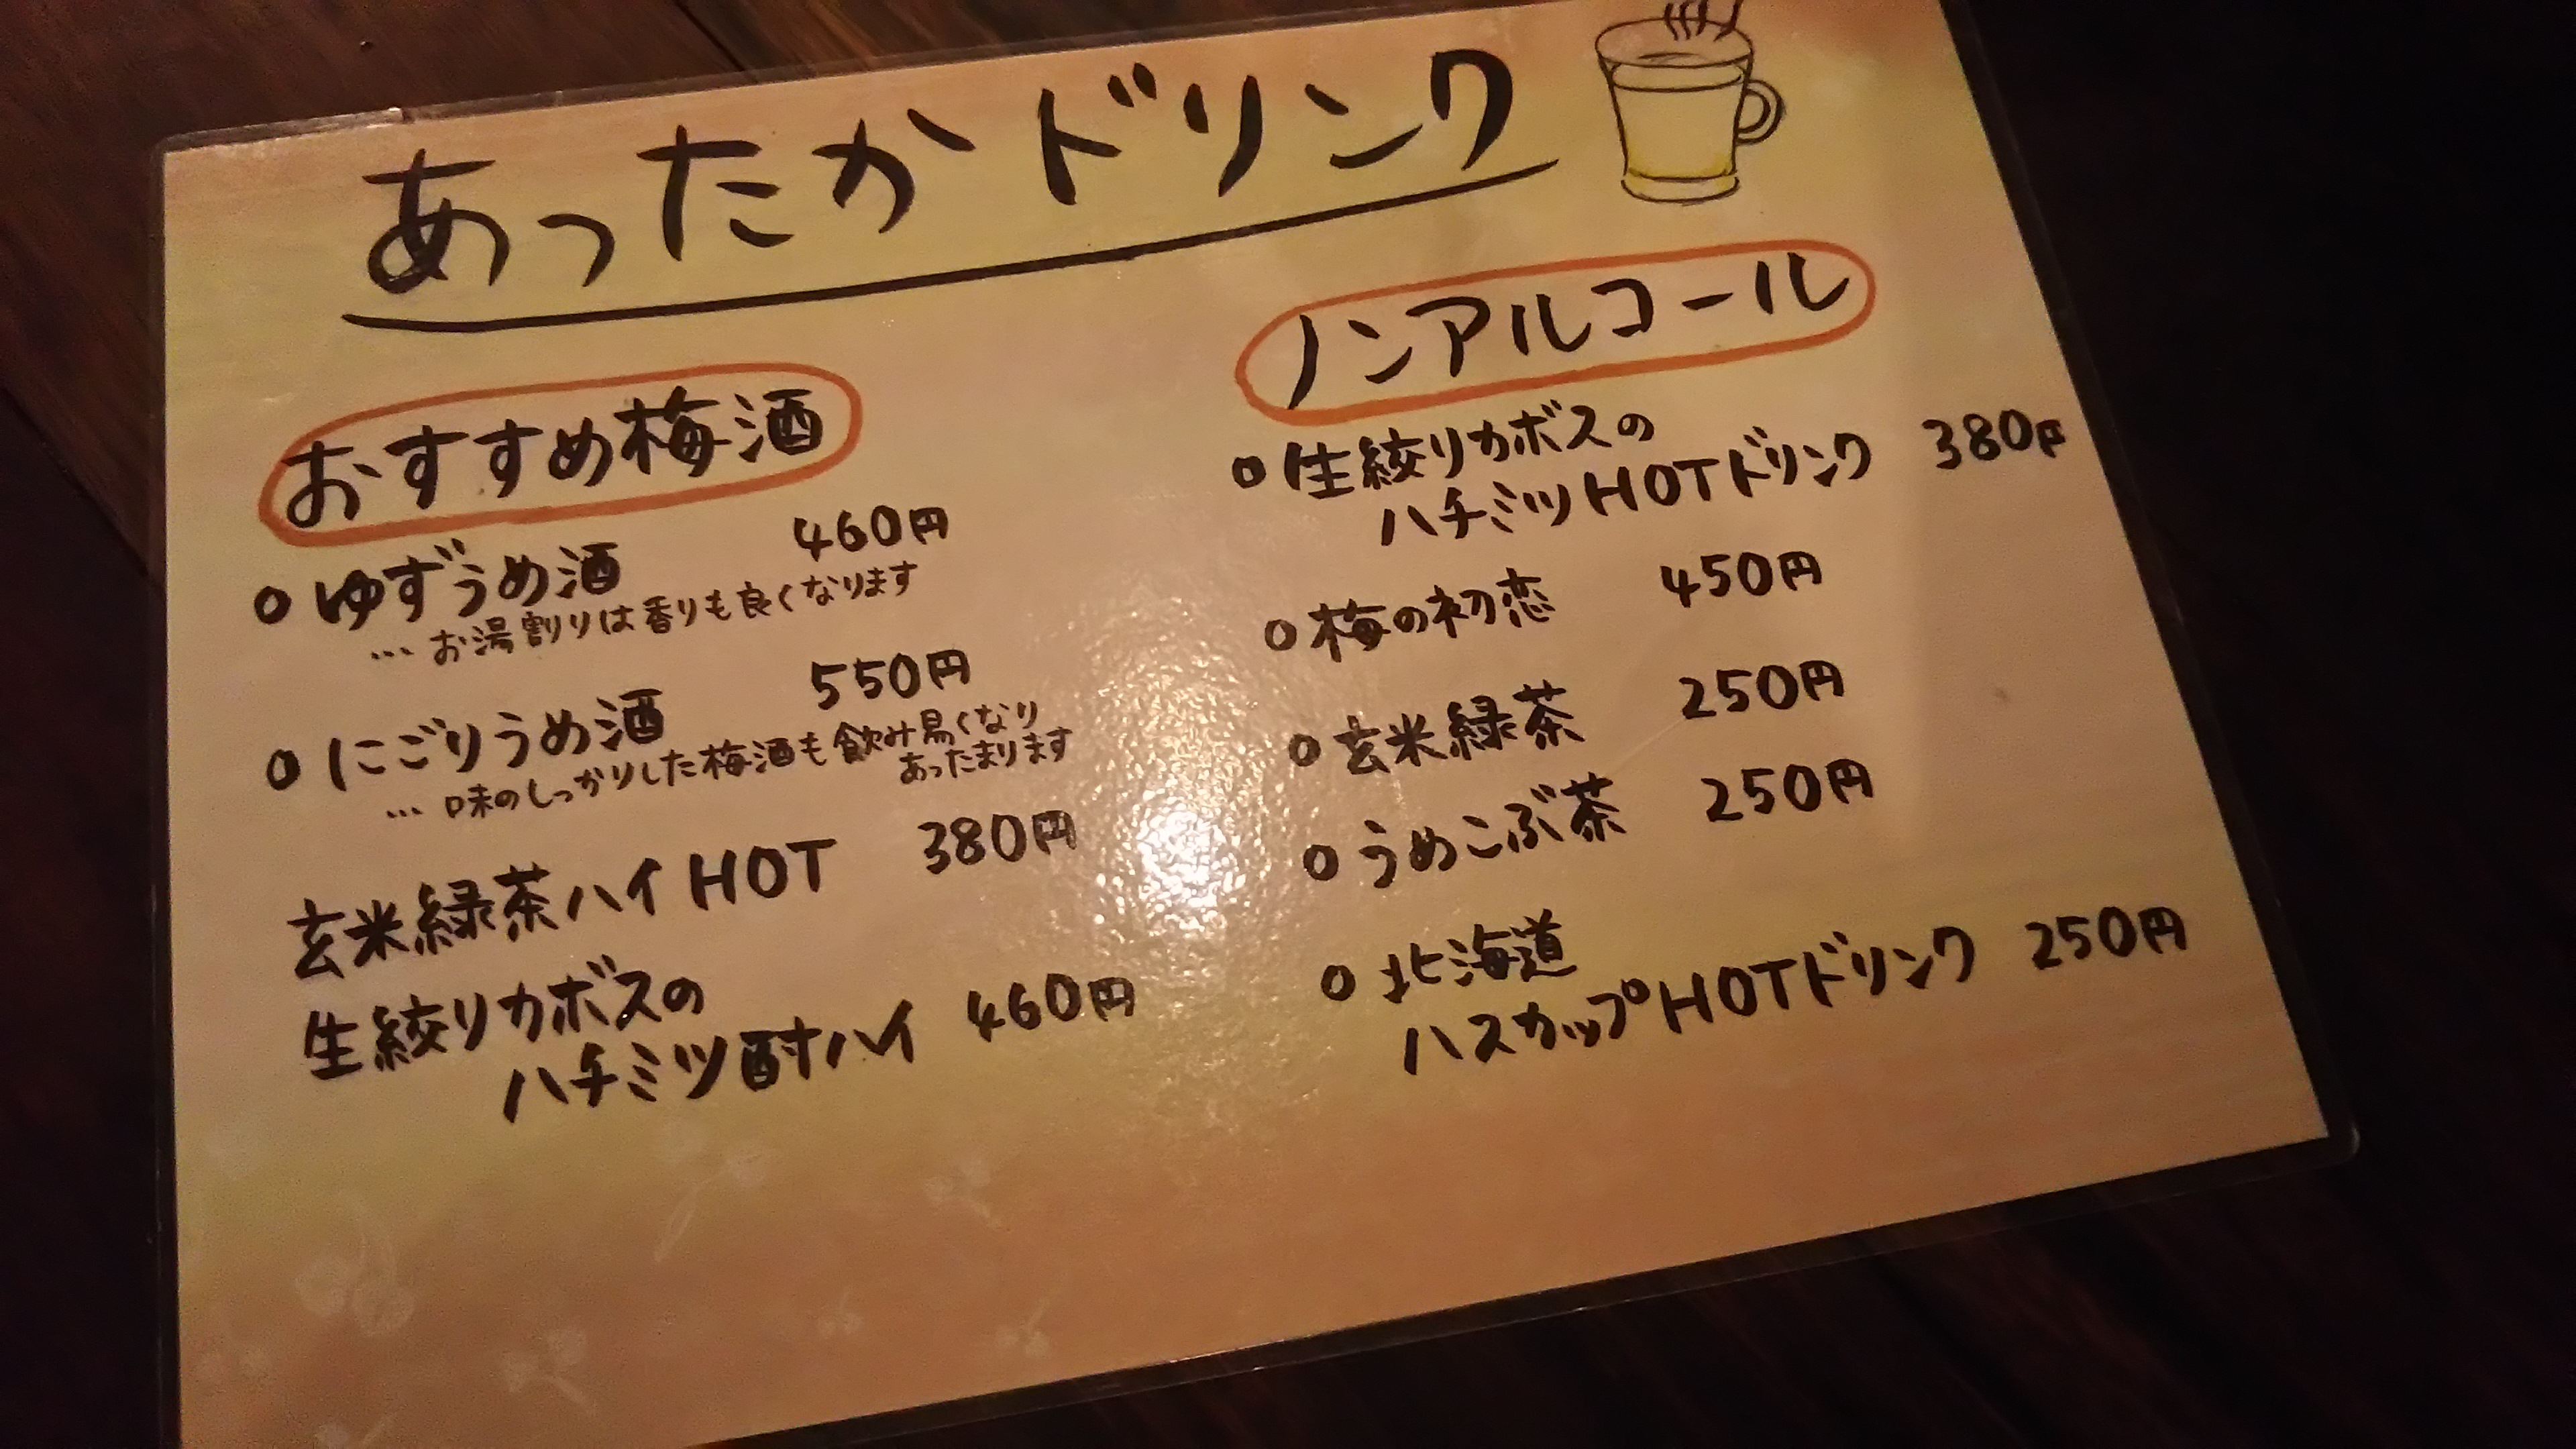 あったかドリンク
おすすめ梅酒
○ ゆずうめ酒 460円
… お湯割りは香りも良くなります
○ にごりうめ酒 550円
… 味のしっかりした梅酒も飲み易くなり
あったまります
玄米緑茶ハイHOT 380円
生絞りカボスの
ハチミツ酎ハイ 460円
ノンアルコール
○ 生絞りカボスの
ハチミツHOTドリンク 380円
○ 梅の初恋 450円
○ 玄米緑茶 250円
○ うめこぶ茶 250円
○ 北海道
ハスカップHOTドリンク 250円